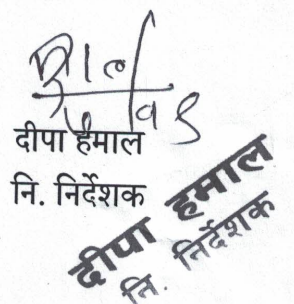 दीपा हमाल
नि. निर्देशक
दीपा हमाल
नि. निर्देशक